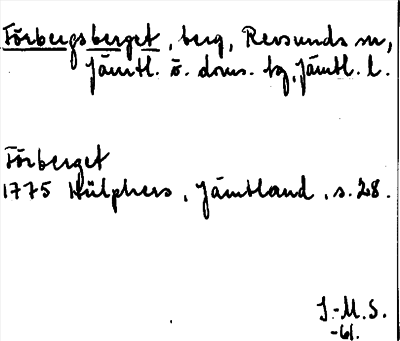 Förbergsberget, berg, Revsunds sn,
Jämtl. ö. doms. tg, Jämtl. l.
Förberget
1775 Hülphers, Jämtland, s. 28.
I.-M.S.
-61.